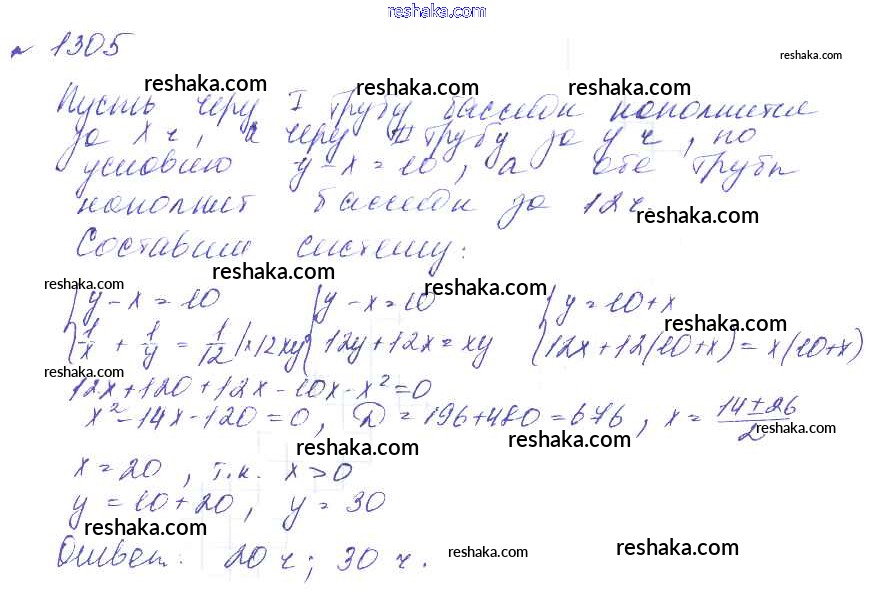 reshaka.com
№ 1305
reshaka.com
reshaka.com reshaka.com reshaka.com
Пусть через I трубу бассейн наполнится
за x ч, а через II трубу за y ч, по
условию y - x = 10, а обе трубы
наполнят бассейн за 12 ч.
reshaka.com
Составим систему:
reshaka.com reshaka.com reshaka.com
{ y - x = 10 { y - x = 10 { y = 10 + x
{ 1/x + 1/y = 1/12 | × 12xy { 12y + 12x = xy { 12x + 12(10 + x) = x(10 + x)
reshaka.com
reshaka.com
12x + 120 + 12x - 10x - x² = 0
x² - 14x - 120 = 0, D = 196 + 480 = 676, x = (14 ± 26)/2
reshaka.com reshaka.com reshaka.com
x = 20, т.к. x > 0
y = 10 + 20, y = 30
reshaka.com
Ответ: 20 ч; 30 ч.
reshaka.com reshaka.com